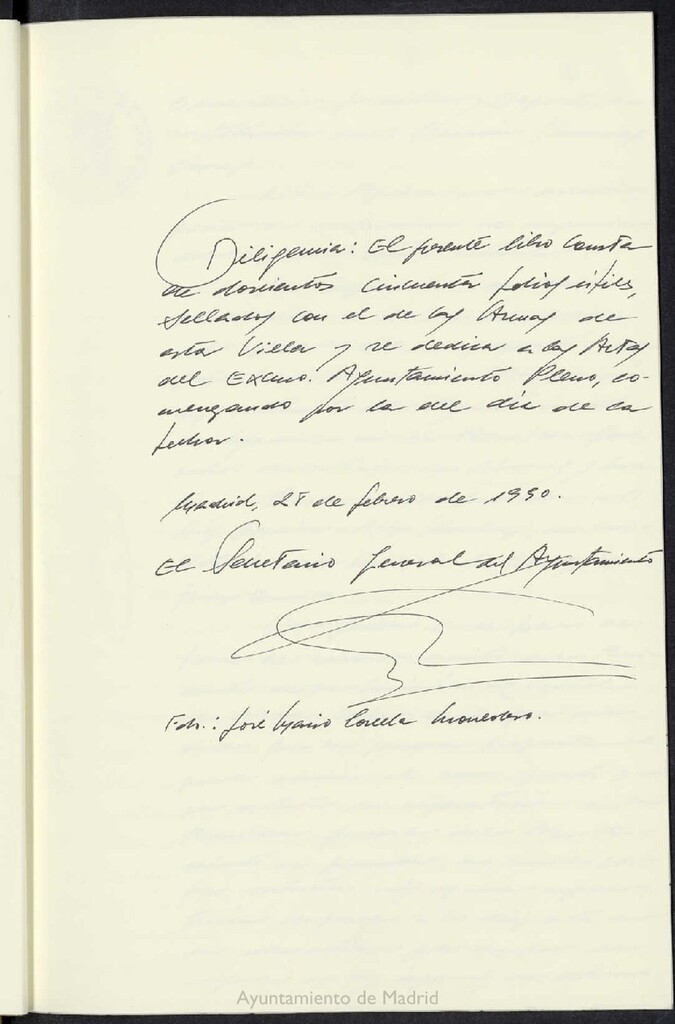 Diligencia: El presente libro consta
de doscientos cincuenta folios útiles,
sellados con el de las Armas de
esta Villa y se dedica a las Actas
del Excmo. Ayuntamiento Pleno, co-
menzando por la del día de la
fecha.
Madrid, de febrero de 1990.
El Secretario General del Ayuntamiento
Fdo.: José Mario Corella Monedero.
Ayuntamiento de Madrid